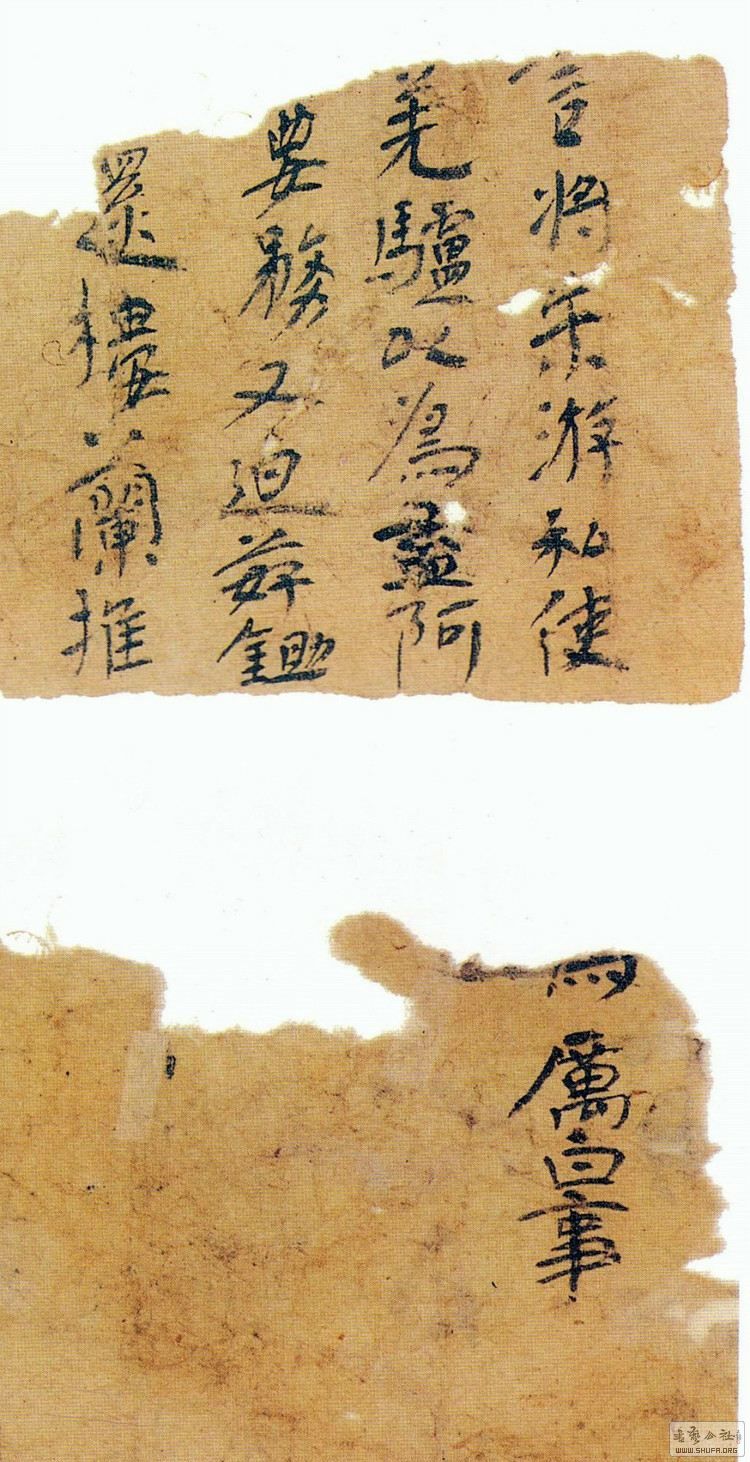 言將朱游私使
羌驢以爲盡阿
要務又迫薛鋤
還樓蘭推
厲白事
書藝公社
WWW.SHUFA.ORG